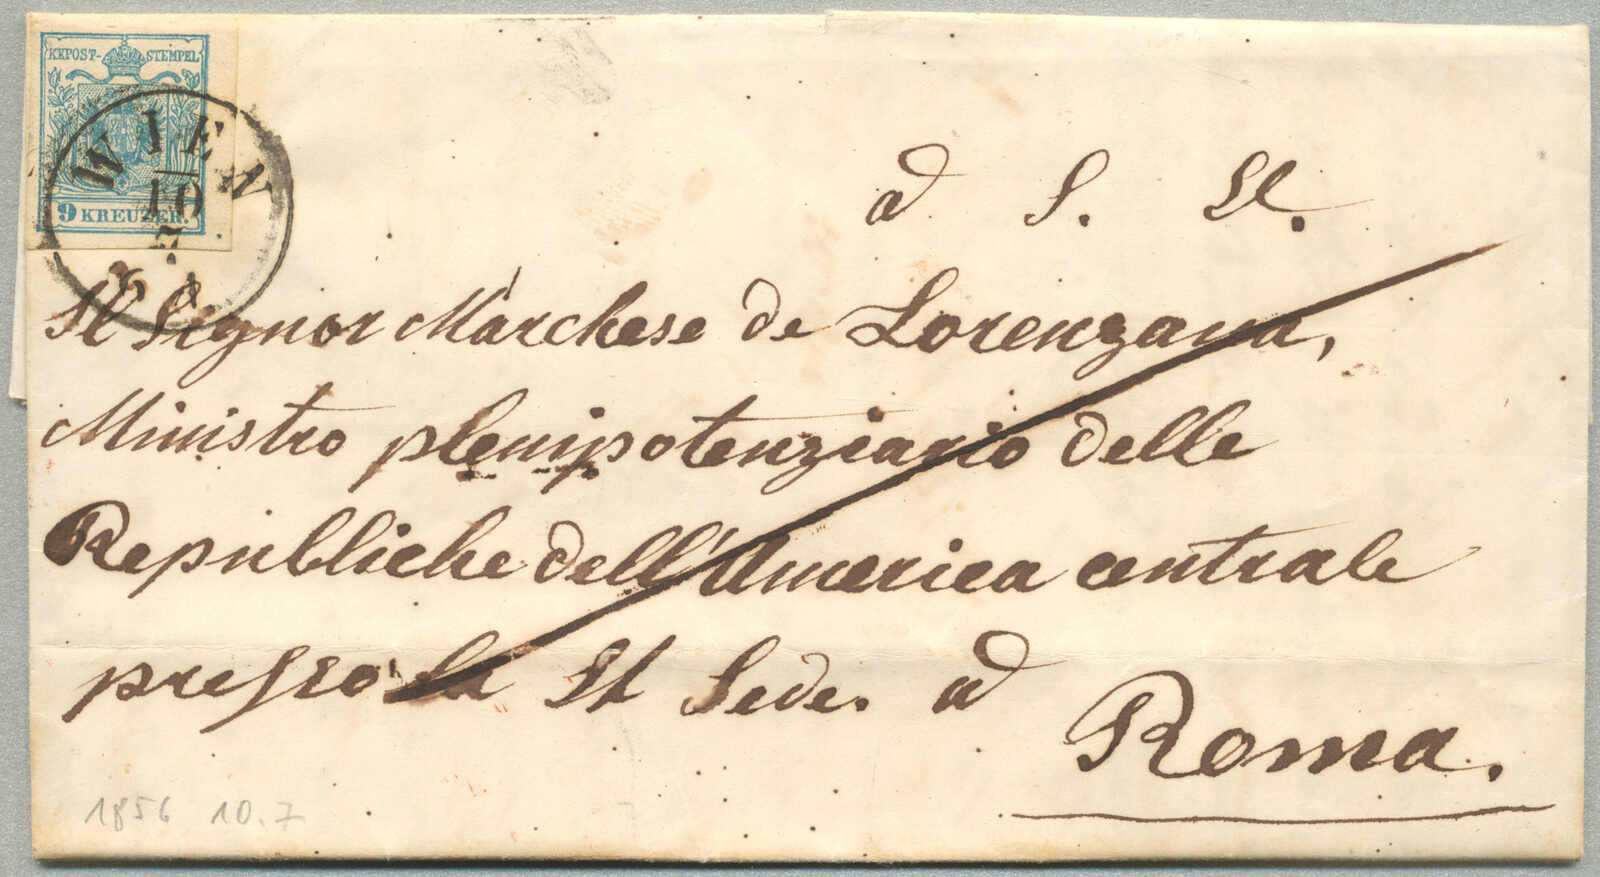 KKPOST- STEMPEL
9 KREUZER.
WIEN
10
7
6 A
a S. E.
Il Signor Marchese de Lorenzana,
Ministro plenipotenziario delle
Republiche dell'America centrale
presso la St Sede. a
Roma.
1856 10.7